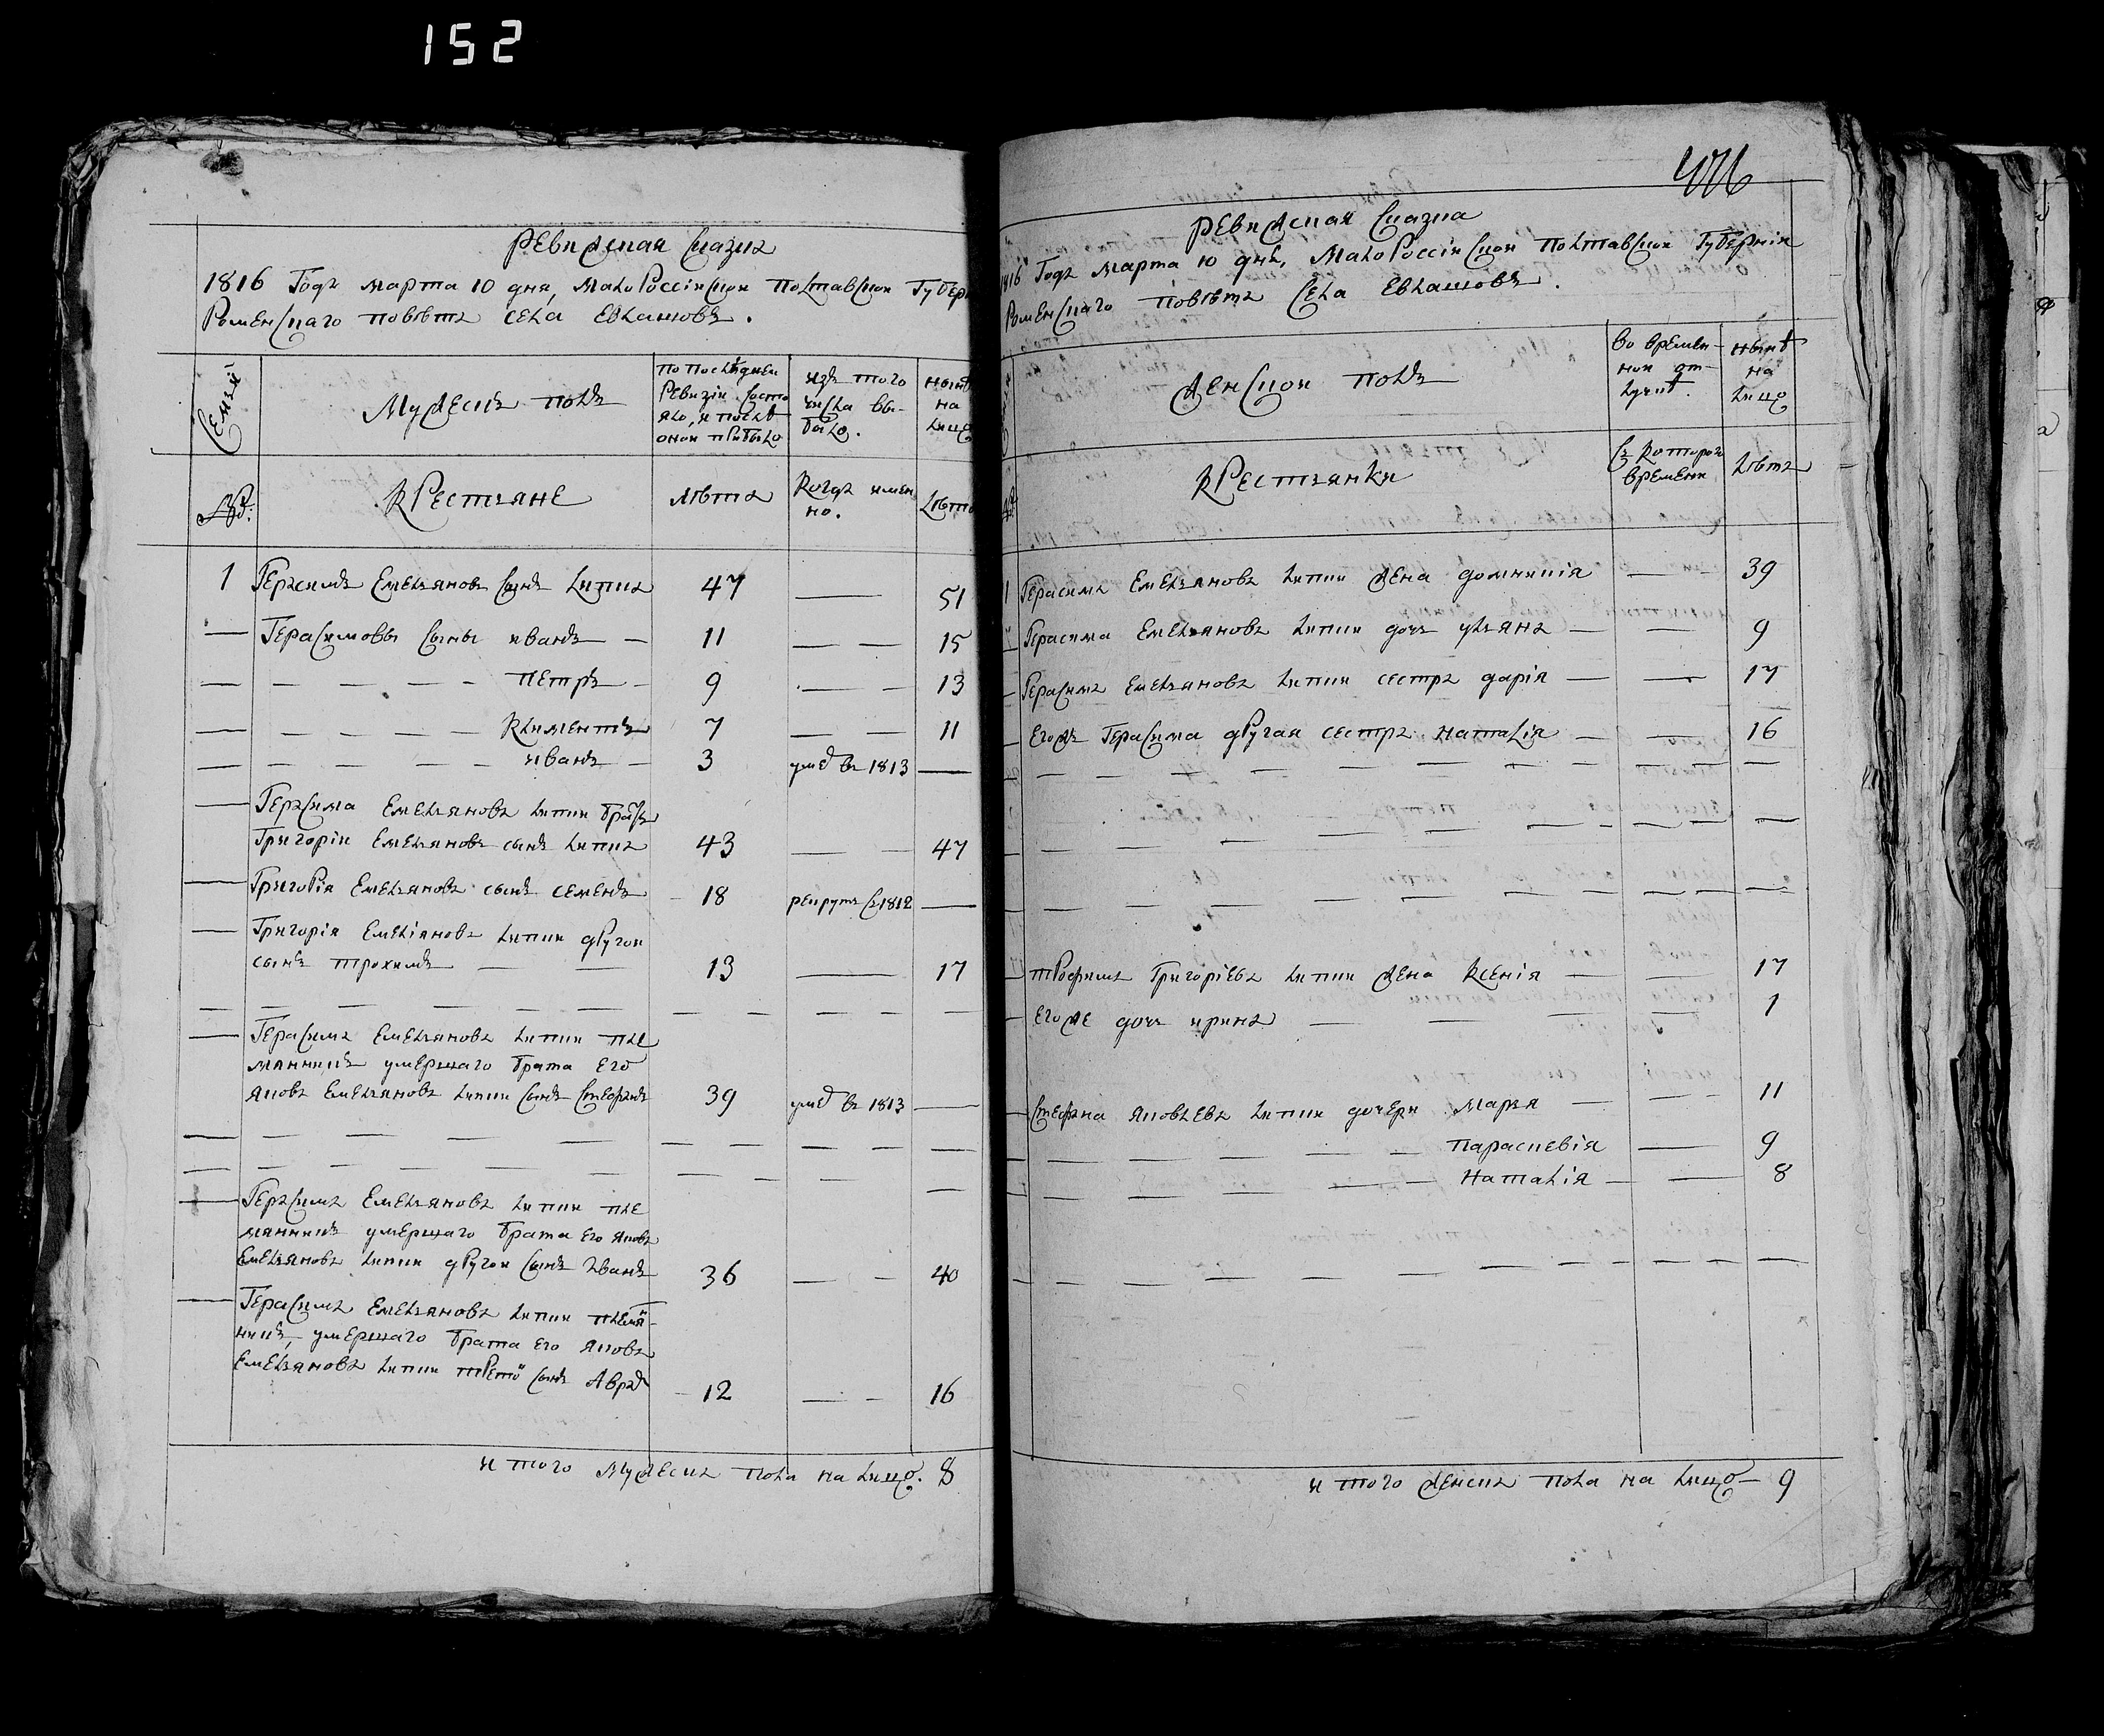 152
Ревижская Сказка
1816 Года марта 10 дня, МалоРоссінской Полтавской Губер
Роменскаго повѣта села Евлашовъ.
Семей
Мужескъ полъ
по последней
Ревизіи состо
яло, и послѣ
оной прибыло
изъ того
числа вы-
было.
нынѣ
на
лицо
№:
Крестьяне
лѣта
Когда имен
но.
лѣта
1 Герасимъ Емельяновъ сынъ Липка 47 — 51
— Герасимовы сыны иванъ — 11 — — 15
— — — — — — Петръ — 9 — — 13
— — — — — — Климентъ 7 — — 11
— — — — — — иванъ — 3 умре въ 1813 —
— Герасима Емельянова Липки братъ
Григорій Емельяновъ сынъ Липка 43 — — 47
— Григорія Емельянова сынъ Семенъ 18 рекрутъ съ 1812 —
— Григорія Емеліянова Липки другой
сынъ трохимъ — — 13 — 17
— — — — — — — — — —
— Герасима Емельянова Липки пле
мянникъ умершаго брата его
Якова Емельянова Липки сынъ Стефанъ 39 умре въ 1813 —
— — — — — — — — — —
— — — — — — — — —
— Герасима Емельянова Липки пле
мянникъ умершаго брата его Якова
Емельянова Липки другой сынъ Иванъ 36 — — 40
— Герасима Емельянова Липки племя-
никъ, умершаго брата его Якова
Емельянова Липки третій сынъ Аврам 12 — — 16
и того мужеска пола на лицо. 8
Ревижская Сказка
1816 Года марта 10 дня, МалоРоссінской Полтавской Губерніи
Роменскаго повѣта Села Евлашовъ.
Женской полъ
Во времен-
ной от-
лучкѣ.
нынѣ
на
лицо
Крестьянки
Съ которого
времени
лѣта
1 Герасима Емельянова Липки жена домникія — — 39
Герасима Емельянова Липки дочь уляна — — 9
Герасима Емельянова Липки сестра дарія — — 17
Егожъ Герасима другая сестра наталія — — 16
— — — — — — — — — —
— — — — — — — — — —
— — — — — — — — — —
трофима Григоріева Липки жена Ксенія — — 17
Егоже дочь ирина — — — — 1
Стефана Яковлева Липки дочери марья — — — 11
— — — — — — Параскевія — 9
— — — — — — Наталія — — 8
— — — — — — — — — —
и того женска пола на лицо — 9